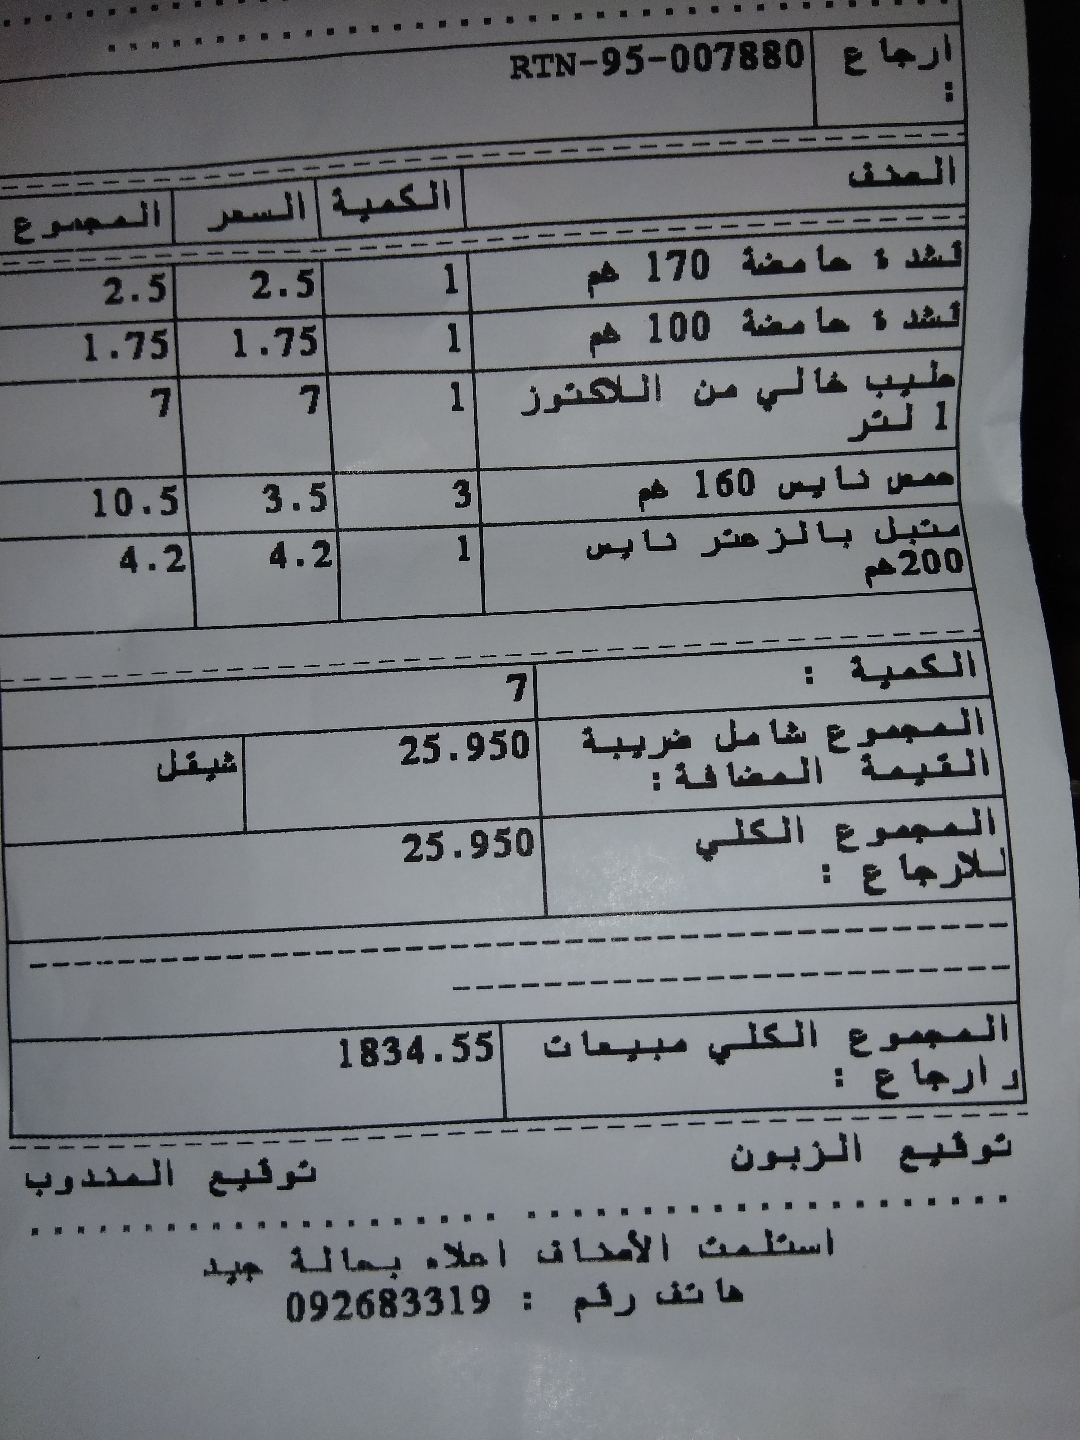 ارجاع RTN-95-007880
:
الصنف الكمية السعر المجموع
قشدة حامضة 170 غم 1 2.5 2.5
قشدة حامضة 100 غم 1 1.75 1.75
حليب خالي من اللاكتوز 1 7 7
1 لتر
حمص نايس 160 غم 3 3.5 10.5
متبل بالزعتر نايس 1 4.2 4.2
200غم
الكمية : 7
المجموع شامل ضريبة 25.950 شيقل
القيمة المضافة:
المجموع الكلي 25.950
للارجاع :
المجموع الكلي مبيعات 1834.55
وارجاع :
توقيع الزبون توقيع المندوب
استلمت الأصناف اعلاه بحالة جيد
هاتف رقم : 092683319